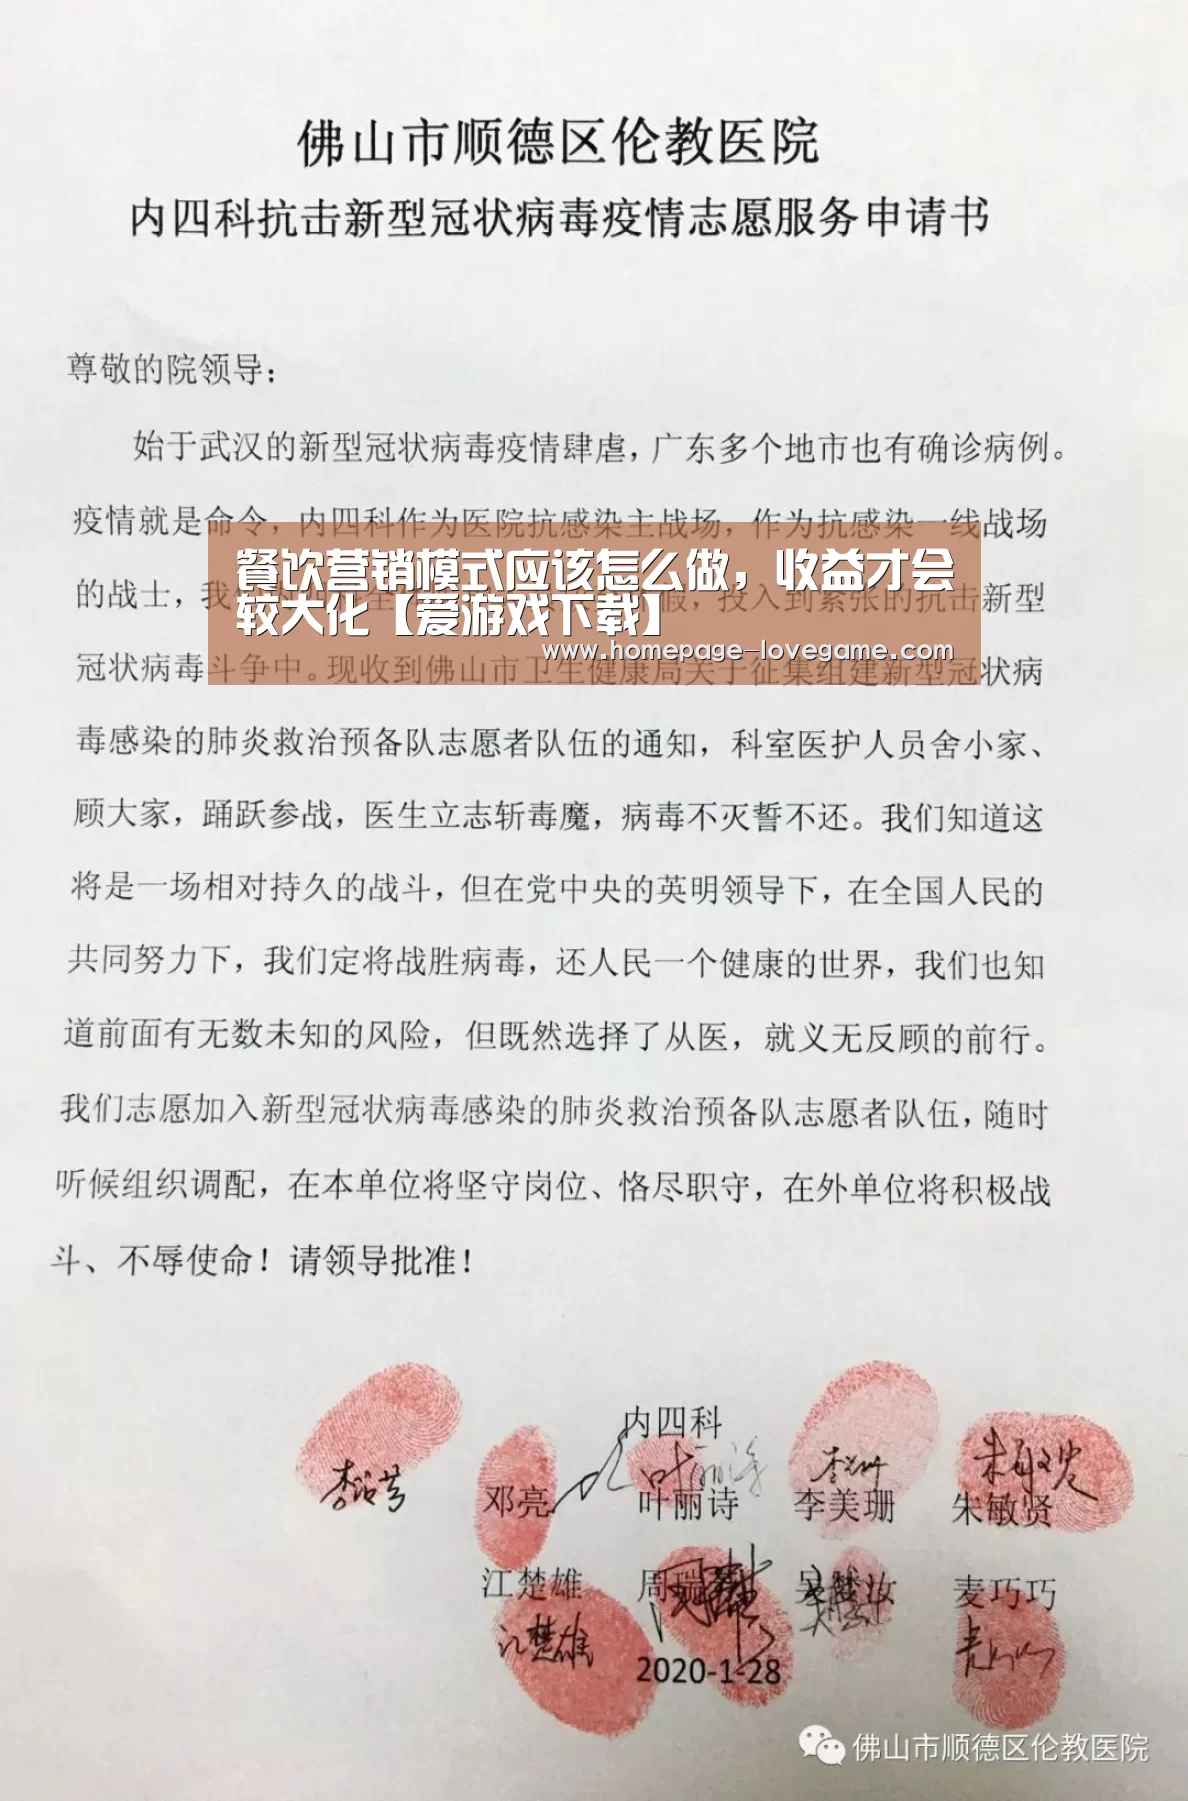 佛山市顺德区伦教医院
内四科抗击新型冠状病毒疫情志愿服务申请书
尊敬的院领导：
始于武汉的新型冠状病毒疫情肆虐，广东多个地市也有确诊病例。
疫情就是命令，内四科作为医院抗感染主战场，作为抗感染一线战场
餐饮营销模式应该怎么做，收益才会
的战士，我 假，投入到紧张的抗击新型
较大化【爱游戏下载】
www.homepage-lovegame.com
冠状病毒斗争中。现收到佛山市卫生健康局关于征集组建新型冠状病
毒感染的肺炎救治预备队志愿者队伍的通知，科室医护人员舍小家、
顾大家，踊跃参战，医生立志斩毒魔，病毒不灭誓不还。我们知道这
将是一场相对持久的战斗，但在党中央的英明领导下，在全国人民的
共同努力下，我们定将战胜病毒，还人民一个健康的世界，我们也知
道前面有无数未知的风险，但既然选择了从医，就义无反顾的前行。
我们志愿加入新型冠状病毒感染的肺炎救治预备队志愿者队伍，随时
听候组织调配，在本单位将坚守岗位、恪尽职守，在外单位将积极战
斗、不辱使命！请领导批准！
内四科
叶丽诗
朱敏贤
邓亮
叶丽诗
李美珊
朱敏贤
江楚雄
周瑞
汝
麦巧巧
江楚雄
麦巧巧
2020-1-28
佛山市顺德区伦教医院